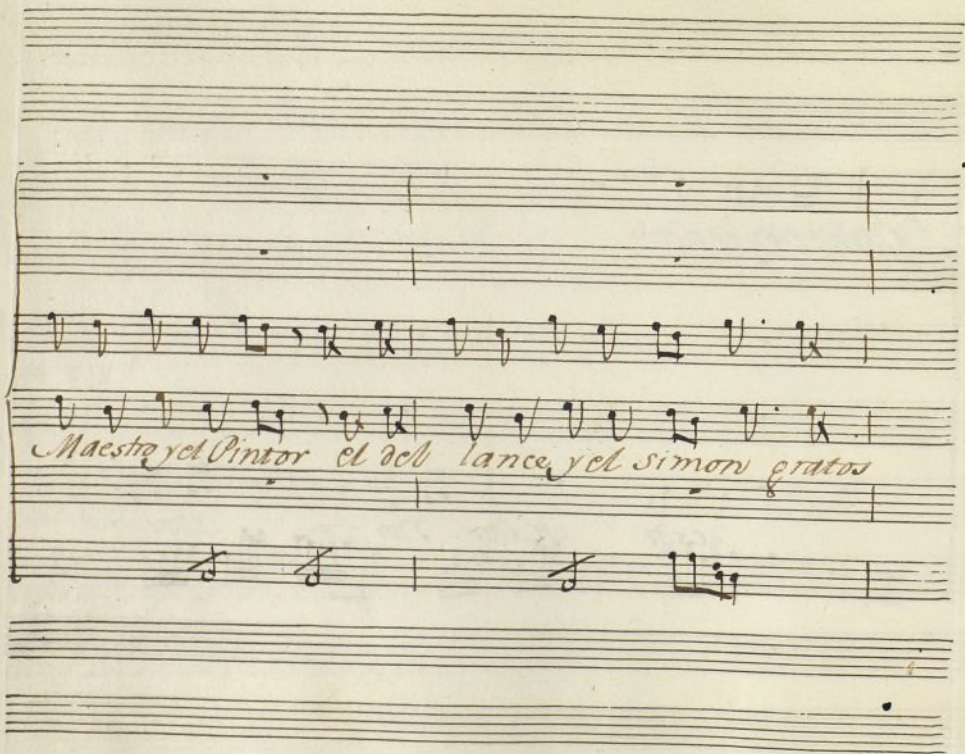 Maestro yel Pintor el del lance yel simon gratos